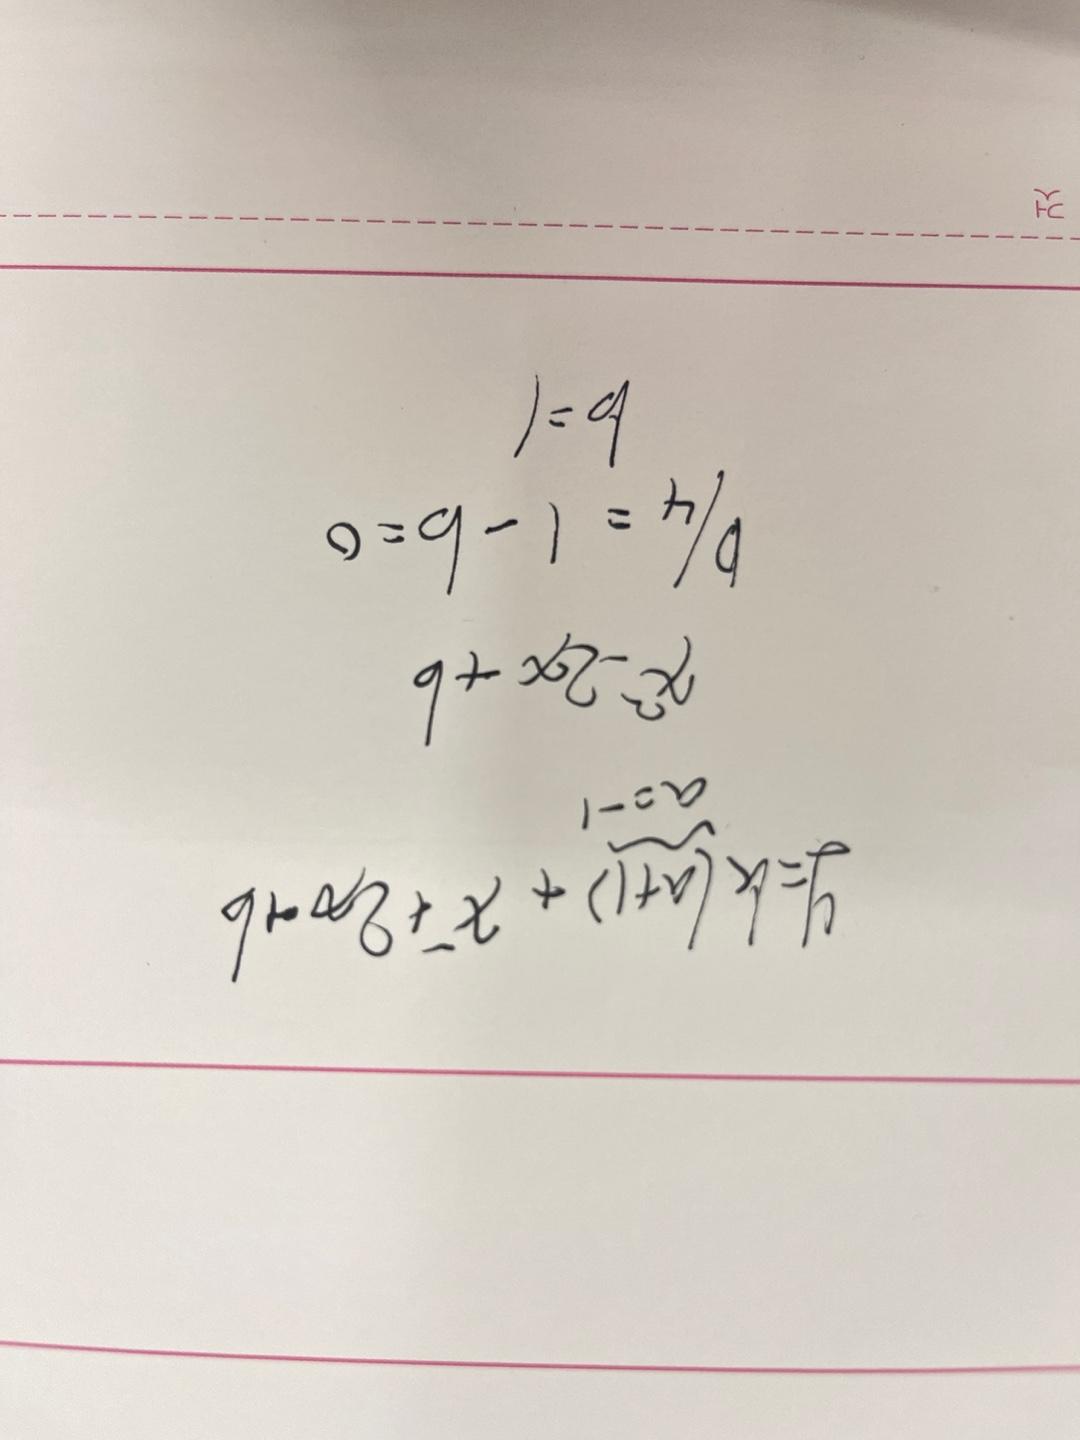 y=k(a+1)+x²+2ax+b
a=-1
x²-2x+b
D/4=1-b=0
b=1